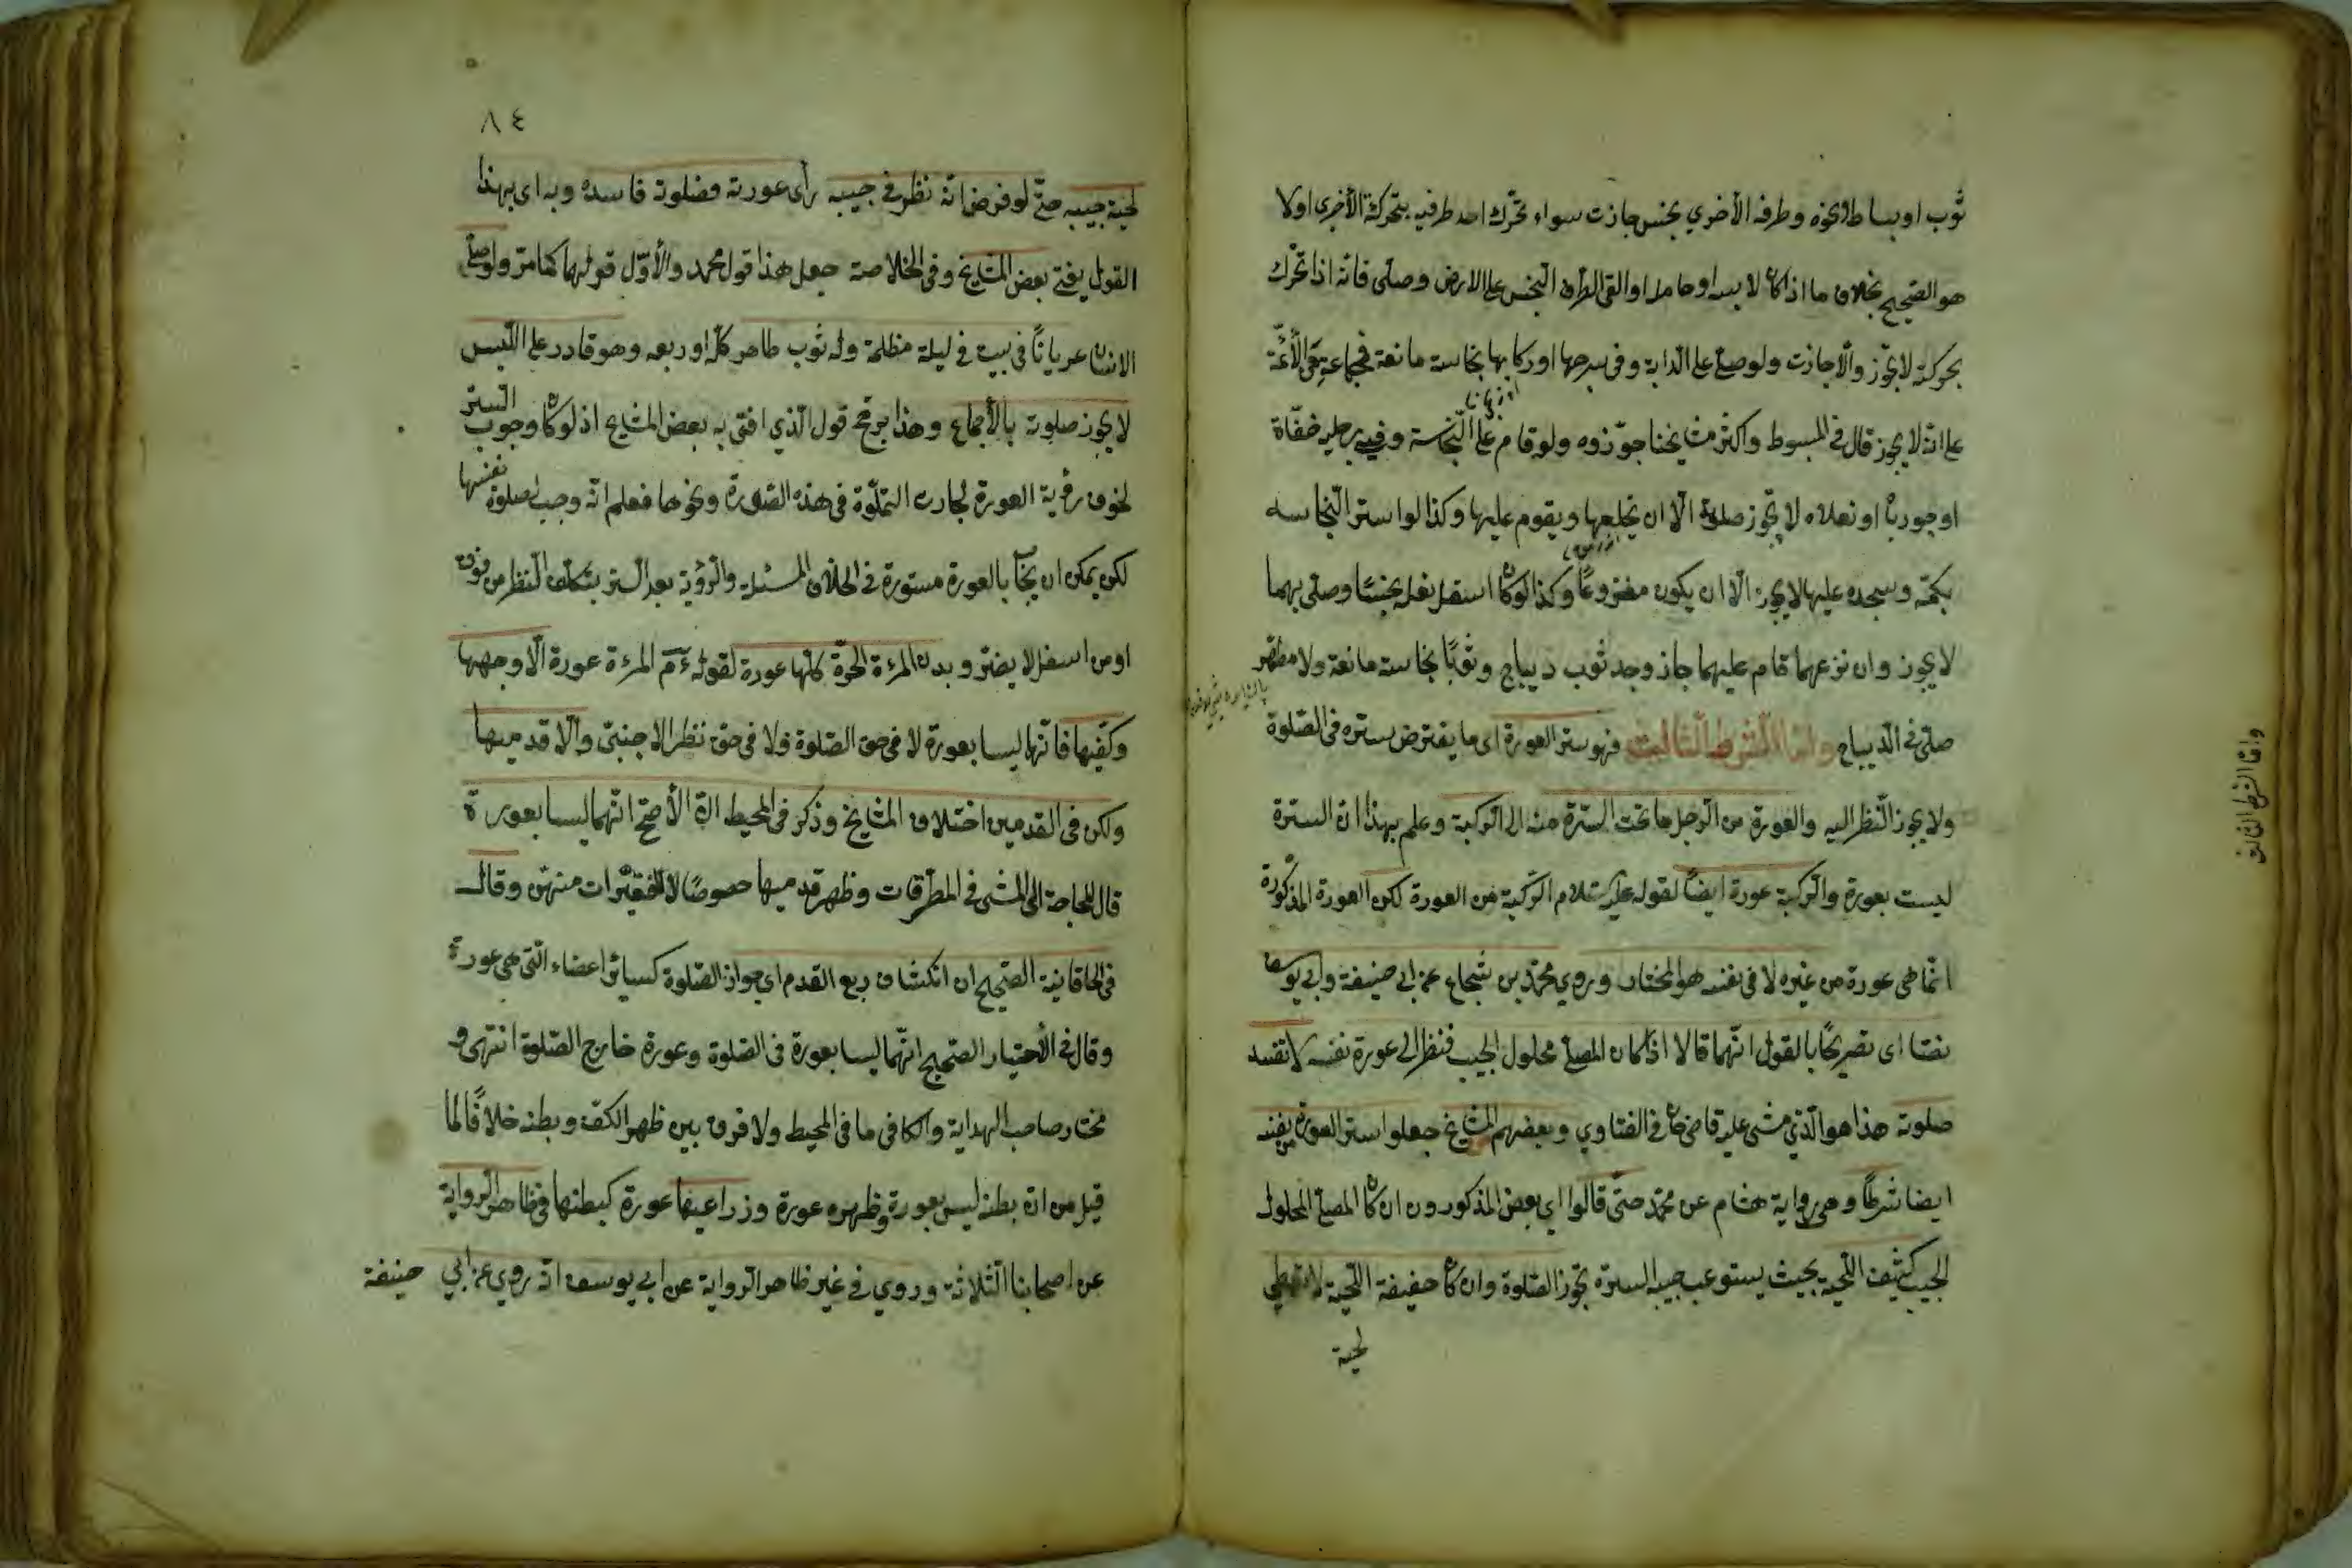 ثوب او بساط ونحوه وطرفه الأخري نجس جازت سواء تحرّك احد طرفيه بتحركة الأخرى اولا
هو الصّحيح بخلاف ما اذا كان لابسه او حامله او القى الطرف النّجس على الارض وصلّى فانّه اذا تحرّك
بحركته لا يجوز والّا جازت ولو صلّى على الدابة وفى سرجها او ركابها نجاسة مانعة فجماعة الأئمّة
على انّه لا يجوز قال فى المبسوط واكثر مشايخنا جوّزوه ولو قام على النّجاسة وفى رجليه خفّاة
او جوربا او نعلاه لا تجوز صلوته الّا ان يخلعها ويقوم عليها وكذا لو استر النّجاسه
بكمّه وسجده عليها لا يجوز الّا ان يكون مفروعًا وكذا لو كان اسفل نعله نجسًا وصلّى بهما
لا يجوز وان نزعهما قام عليهما جاز وجد ثوب ديباج وثوبًا نجاسة مانعة ولا مطهّر
صلّى فى الدّيباج وامّا الشرط الثّالث فهو ستر العورة اى ما يفترض ستره فى الصّلوة
ولا يجوز النّظر اليه والعورة من الرّجل ما تحت السّترة منه الى الرّكبة وعلم بهذا انّ السترة
ليست بعورة والرّكبة عورة ايضًا لقوله عليه السّلام الرّكبة من العورة لكن العورة المذكورة
انّما هى عورة من غيره لا فى نفسه هو المختار وروي محمّد بن شجاع عن ابى حنيفة وابى يوسف
نصّا اى تصريحًا بالقول انّهما قالا اذا كان المصلّى محلول الجيب فنظر الى عورة نفسه لا تفسد
صلوته هذا هو الّذي مشى عليه قاضى خان فى الفتاوي وبعضهم المشايخ جعلوا ستر العورة من نفسه
ايضا شرطًا وهى رواية هشام عن محمّد حتّى قالوا اى بعض المذكورون ان كان المصلّى المحلول
الجيب كثيف اللّحية بحيث يستوعب جيبه السترة تجوز الصّلوة وان كان خفيفة اللّحية لا تغطي
لحية
وامّا الشرط الثالث
٨٤
لحيته جيبه حتّى لو فرض انّه نظر فى جيبه رأى عورته فصلوته فاسده وبه اى بهذا
القول يفتى بعض المشايخ وفى الخلاصة جعل هذا قول محمد والأوّل قولهما كما مرّ ولو صلّى
الانسان عريانًا فى بيت فى ليلة مظلمة وله ثوب طاهر كلّه او ربعه وهو قادر على اللّبس
لا يجوز صلوته بالأجماع وهذا يرجّح قول الّذي افتى به بعض المشايخ اذ لو كان وجوب السّتر
لخوف رؤية العورة لجازت الصّلوة فى هذه الصّورة ونحوها فعلم انّه وجب لصلوة نفسها
لكن يمكن ان يجاب بالعورة مستورة فى الخلاف المسئلة والرّؤية بعد السّتر بتكلّف النّظر من فوق
او من اسفل لا يضرّ وبدن المرءة الحرّة كلّها عورة لقوله ءم المرءة عورة الّا وجهها
وكفّيها فانّهما ليسا بعورة لا فى حق الصّلوة ولا فى حق نظر الاجنبىّ والّا قدميها
ولكن فى القدمين اختلاف المشايخ وذكر فى المحيط انّ الأصحّ انّهما ليسا بعورة
قال للحاجة الى المشى فى الطّرقات وظهر قدميها خصوصًا للفقيرات منهنّ وقال
فى الخاقانية الصّحيح ان انكشاف ربع القدم اى جواز الصّلوة كسائر اعضاء الّتى هى عورة
وقال فى الأختيار الصّحيح انّهما ليسا بعورة فى الصّلوة وعورة خارج الصّلوة انتهى و
مختار صاحب الهداية والكافى ما فى المحيط ولا فرق بين ظهر الكفّ وبطنه خلافًا لما
قيل من انّ بطنه ليس بعورة وظهره عورة وذراعيها عورة كبطنها فى ظاهر الرّواية
عن اصحابنا الثّلاثة وروي فى غير ظاهر الرّواية عن ابى يوسف انّه روي عن ابي حنيفة